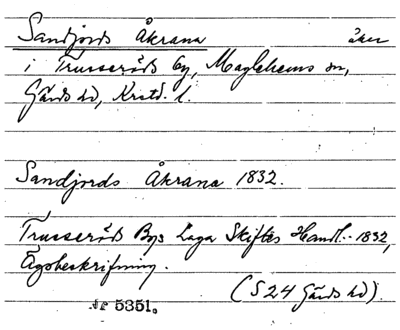 Sandjords Åkrana åker
i Trusseröds by, Maglehems sn,
Gärds hd, Krstd. l.
Sandjords Åkrana 1832.
Trusseröds Bys Laga Skiftes Handl. 1832,
Ägobeskrifning.
(S 24 Gärds hd).
№ 5351.